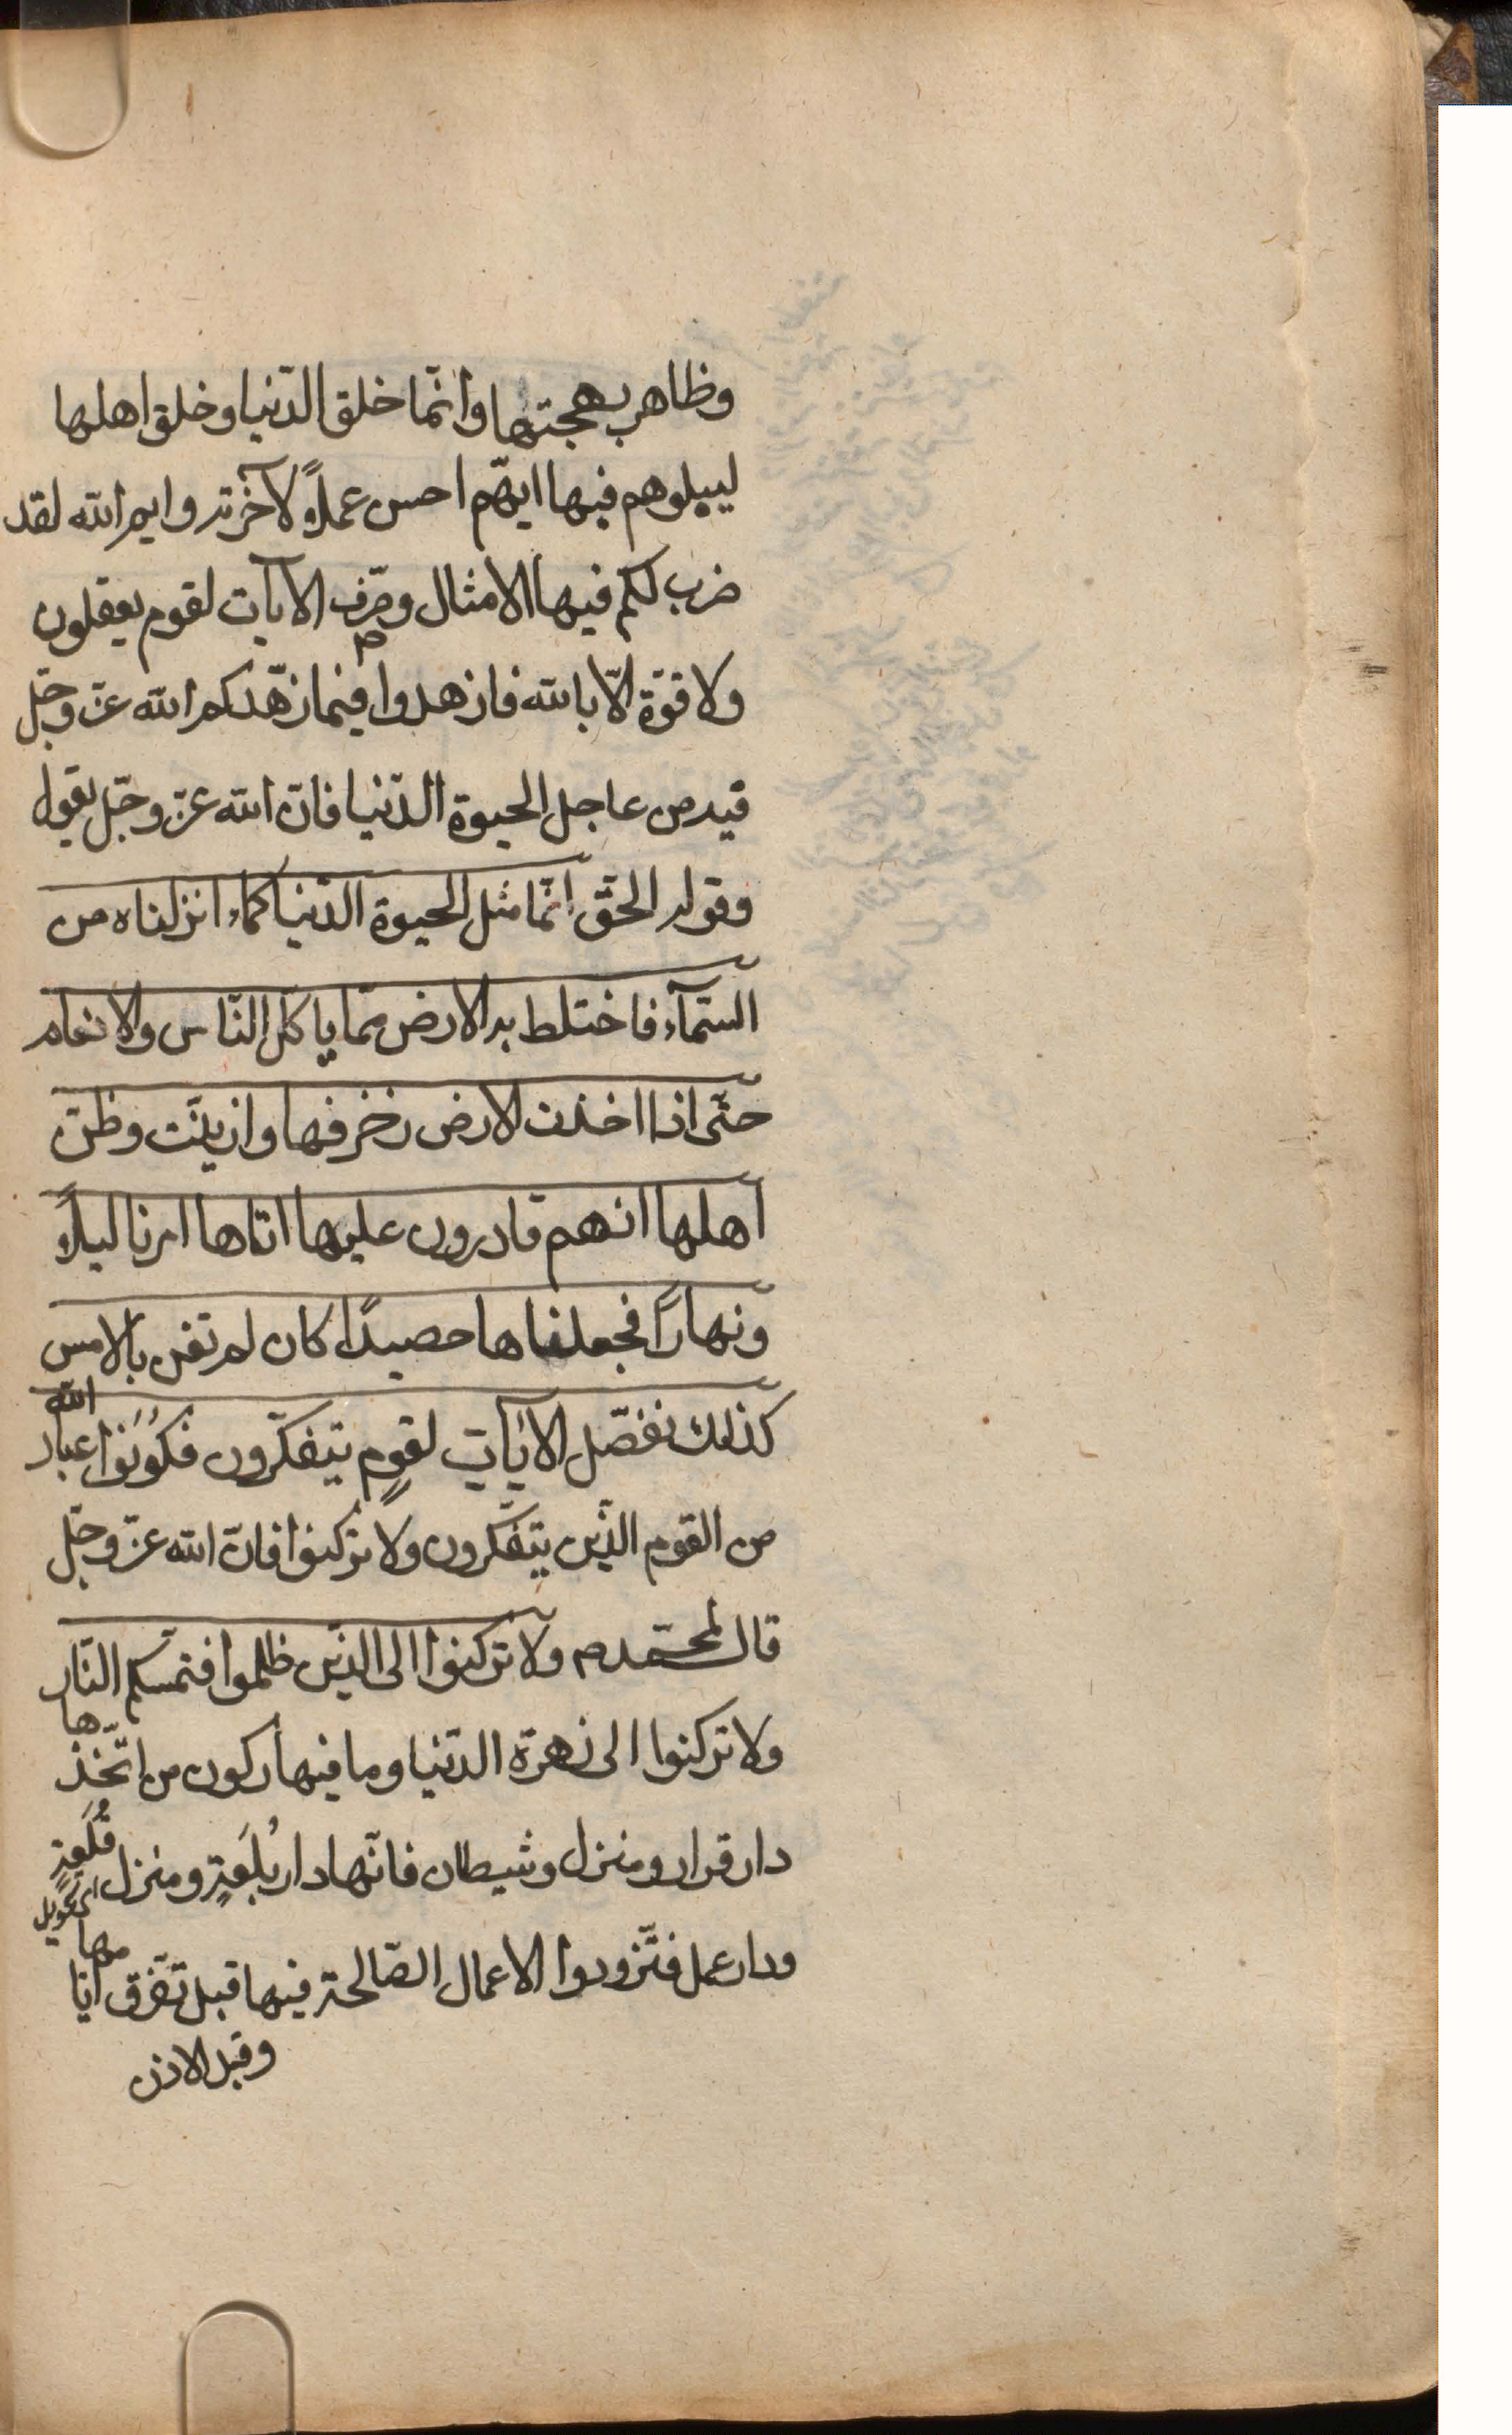 وظاهر بهجتها وانّما خلق الدّنيا وخلق اهلها
ليبلوهم فيها ايّهم احسن عملاً لآخرته وايم الله لقد
ضرب لكم فيها الامثال وصرّف الآيات لقوم يعقلون
ولا قوّة الّا بالله فازهدوا فيما زهّدكم الله عزّ وجلّ
فيه من عاجل الحيوة الدّنيا فانّ الله عزّ وجلّ يقول
وقوله الحقّ انّما مثل الحيوة الدّنيا كماء انزلناه من
السّمآء فاختلط به الارض ممّا ياكل النّاس والانعام
حتّى اذا اخذت الارض زخرفها وازيّنت وظنّ
اهلها انهم قادرون عليها اتاها امرنا ليلاً
ونهاراً فجعلناها حصيداً كان لم تغن بالامس
كذلك نفصّل الآيات لقومٍ يتفكّرون فكونوا عباد الله
من القوم الذّين يتفكّرون ولا تركنوا فانّ الله عزّ وجلّ
قال لمحمّد ص ولا تركنوا الى الذّين ظلموا فتمسّكم النّار
ولا تركنوا الى زهرة الدّنيا وما فيها ركون من اتّخذها
دار قرار ومنزل وشيطان فانّها دار بُلغةٍ ومنزل قُلعَةٍ
اى تحويل
ودار عمل فتزّودوا الاعمال الصّالحة فيها قبل تفرّق ايّامها
وقبل الاذن